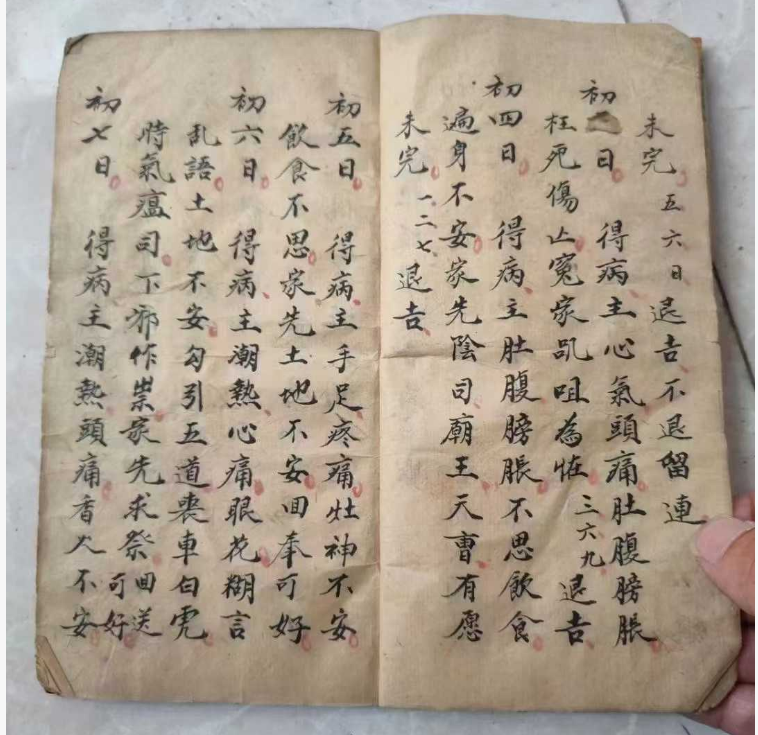 未完 五六日退吉不退留連
初 日 得病主心氣頭痛肚腹膀脹
枉死傷亡冤家咒咀為怪 三六九退吉
初四日 得病主肚腹膀脹不思飲食
遍身不安家先陰司廟王天曹有愿
未完 一二七退吉
初五日 得病主手足疼痛灶神不安
飲食不思家先土地不安回奉可好
初六日 得病主潮熱心痛眼花糊言
乱語土地不安勾引五道喪車白虎
時氣瘟司下邪作祟家先求祭回送可好
初七日 得病主潮熱頭痛香火不安